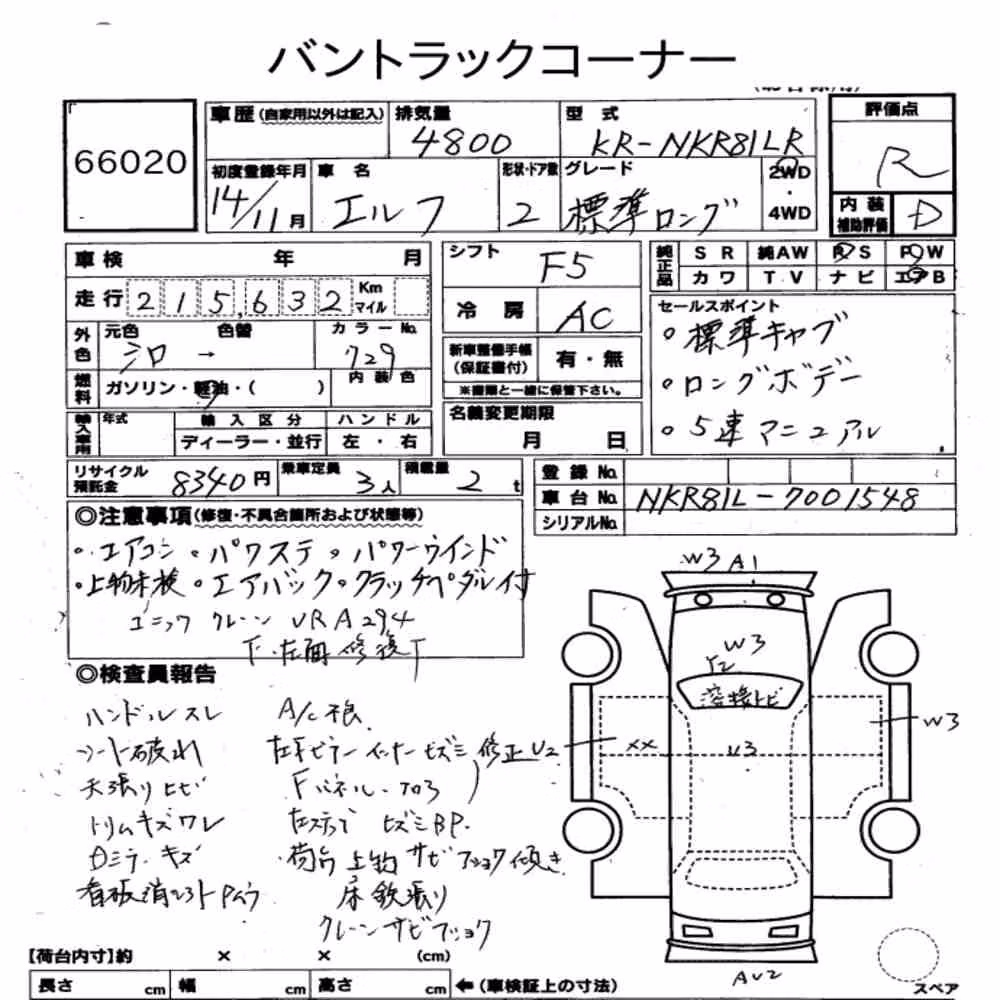 バントラックコーナー
66020
車歴 (自家用以外は記入) 排気量 型式 評価点
4800 KR-NKR81LR R
初度登録年月 車名 形状・ドア数 グレード 2WD・4WD 内装補助評価
14/11月 エルフ 2 標準ロング D
車検 年 月 シフト F5 純正品 SR 純AW PS PW
カワ TV ナビ エアB
走行 215,632 Km マイル 冷房 AC セールスポイント
。標準キャブ
。ロングボデー
。5速マニュアル
外色 元色 色替 カラーNo.
シロ → 729 新車整備手帳(保証書付) 有・無
燃料 ガソリン・軽油・( ) 内装色 ※書類と一緒に保管下さい。
輸入車用 年式 輸入区分 ハンドル 名義変更期限
ディーラー・並行 左・右 月 日
リサイクル預託金 8340円 乗車定員 3人 積載量 2t 登録No.
車台No. NKR81L-7001548
シリアルNo.
◎注意事項(修復・不具合箇所および状態等)
・エアコン 。パワステ 。パワーウインド
・上物未検 。エアバック 。クラッチペダル付
ユニック クレーン URA294
F.左面修復歴
W3 A1
W3
Y2
溶接トビ
W3
U2 XX U3
◎検査員報告
ハンドルスレ A/C不良
シート破れ 左Fピラーインナーヒズミ修正
天張りヒビ Fパネル・プロ3
トリムキズワレ 左ステップ ヒズミBP.
Dミラーキズ ・荷台上物サビフショク傾き
看板消し跡ムラ 床鉄張り
クレーンサビフショク
AU2
【荷台内寸】約 × × (cm)
長さ cm 幅 cm 高さ cm ←(車検証上の寸法)
スペア